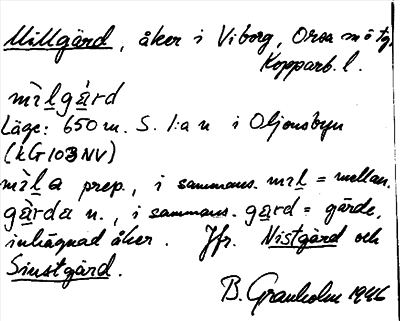 Millgärd, åker i Viborg, Orsa sn ö tg,
Kopparb. l.
mìlgàrd
Läge: 650 m. S. 1:a n i Oljonsbyn
(kG 103 NV)
mìla prep., i sammans. mìl = mellan.
gàrda n., i sammans. gàrd = gärde,
inhägnad åker. Jfr. Nistgärd och
Sinstgärd.
B. Granholm 1946